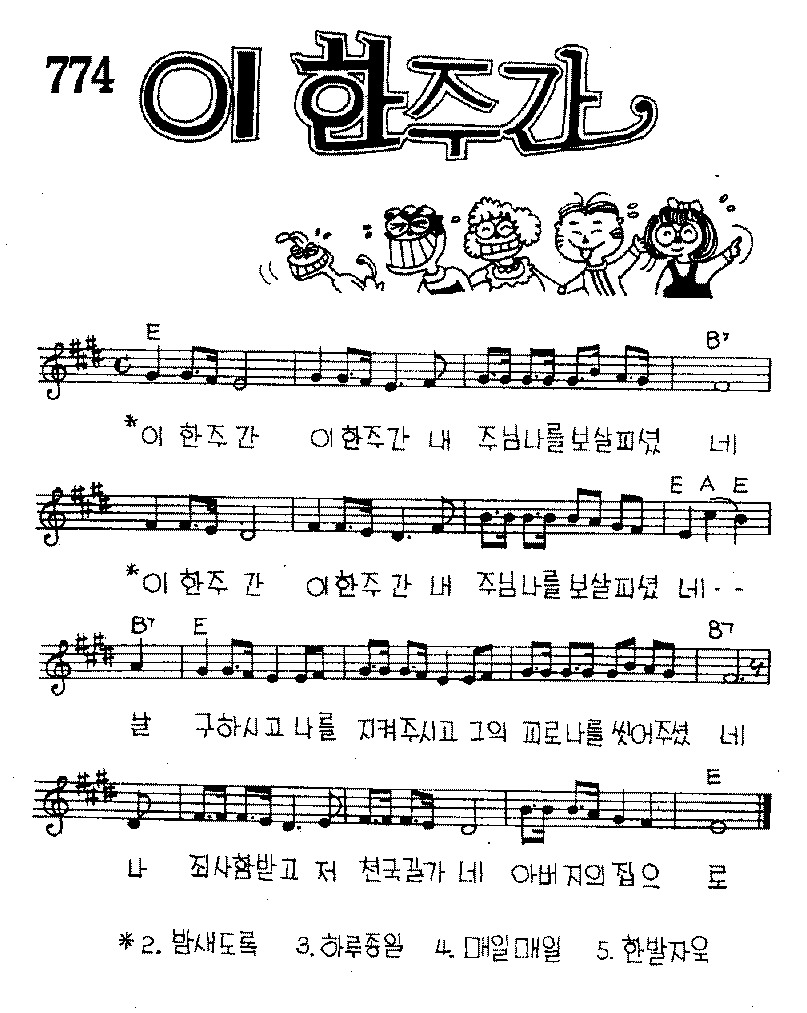 774 이 한주간
E B7
*이 한주간 이한주간 내 주님나를보살피셨 네
E A E
*이 한주 간 이한주간 내 주님나를보살피셨 네--
B7 E B7
날 구하시고 나를 지켜주시고 그의 피로나를씻어주셨 네
E
나 죄사함받고 저 천국길가 네 아버지의집으 로
*2. 밤새도록 3. 하루종일 4. 매일매일 5. 한발자욱